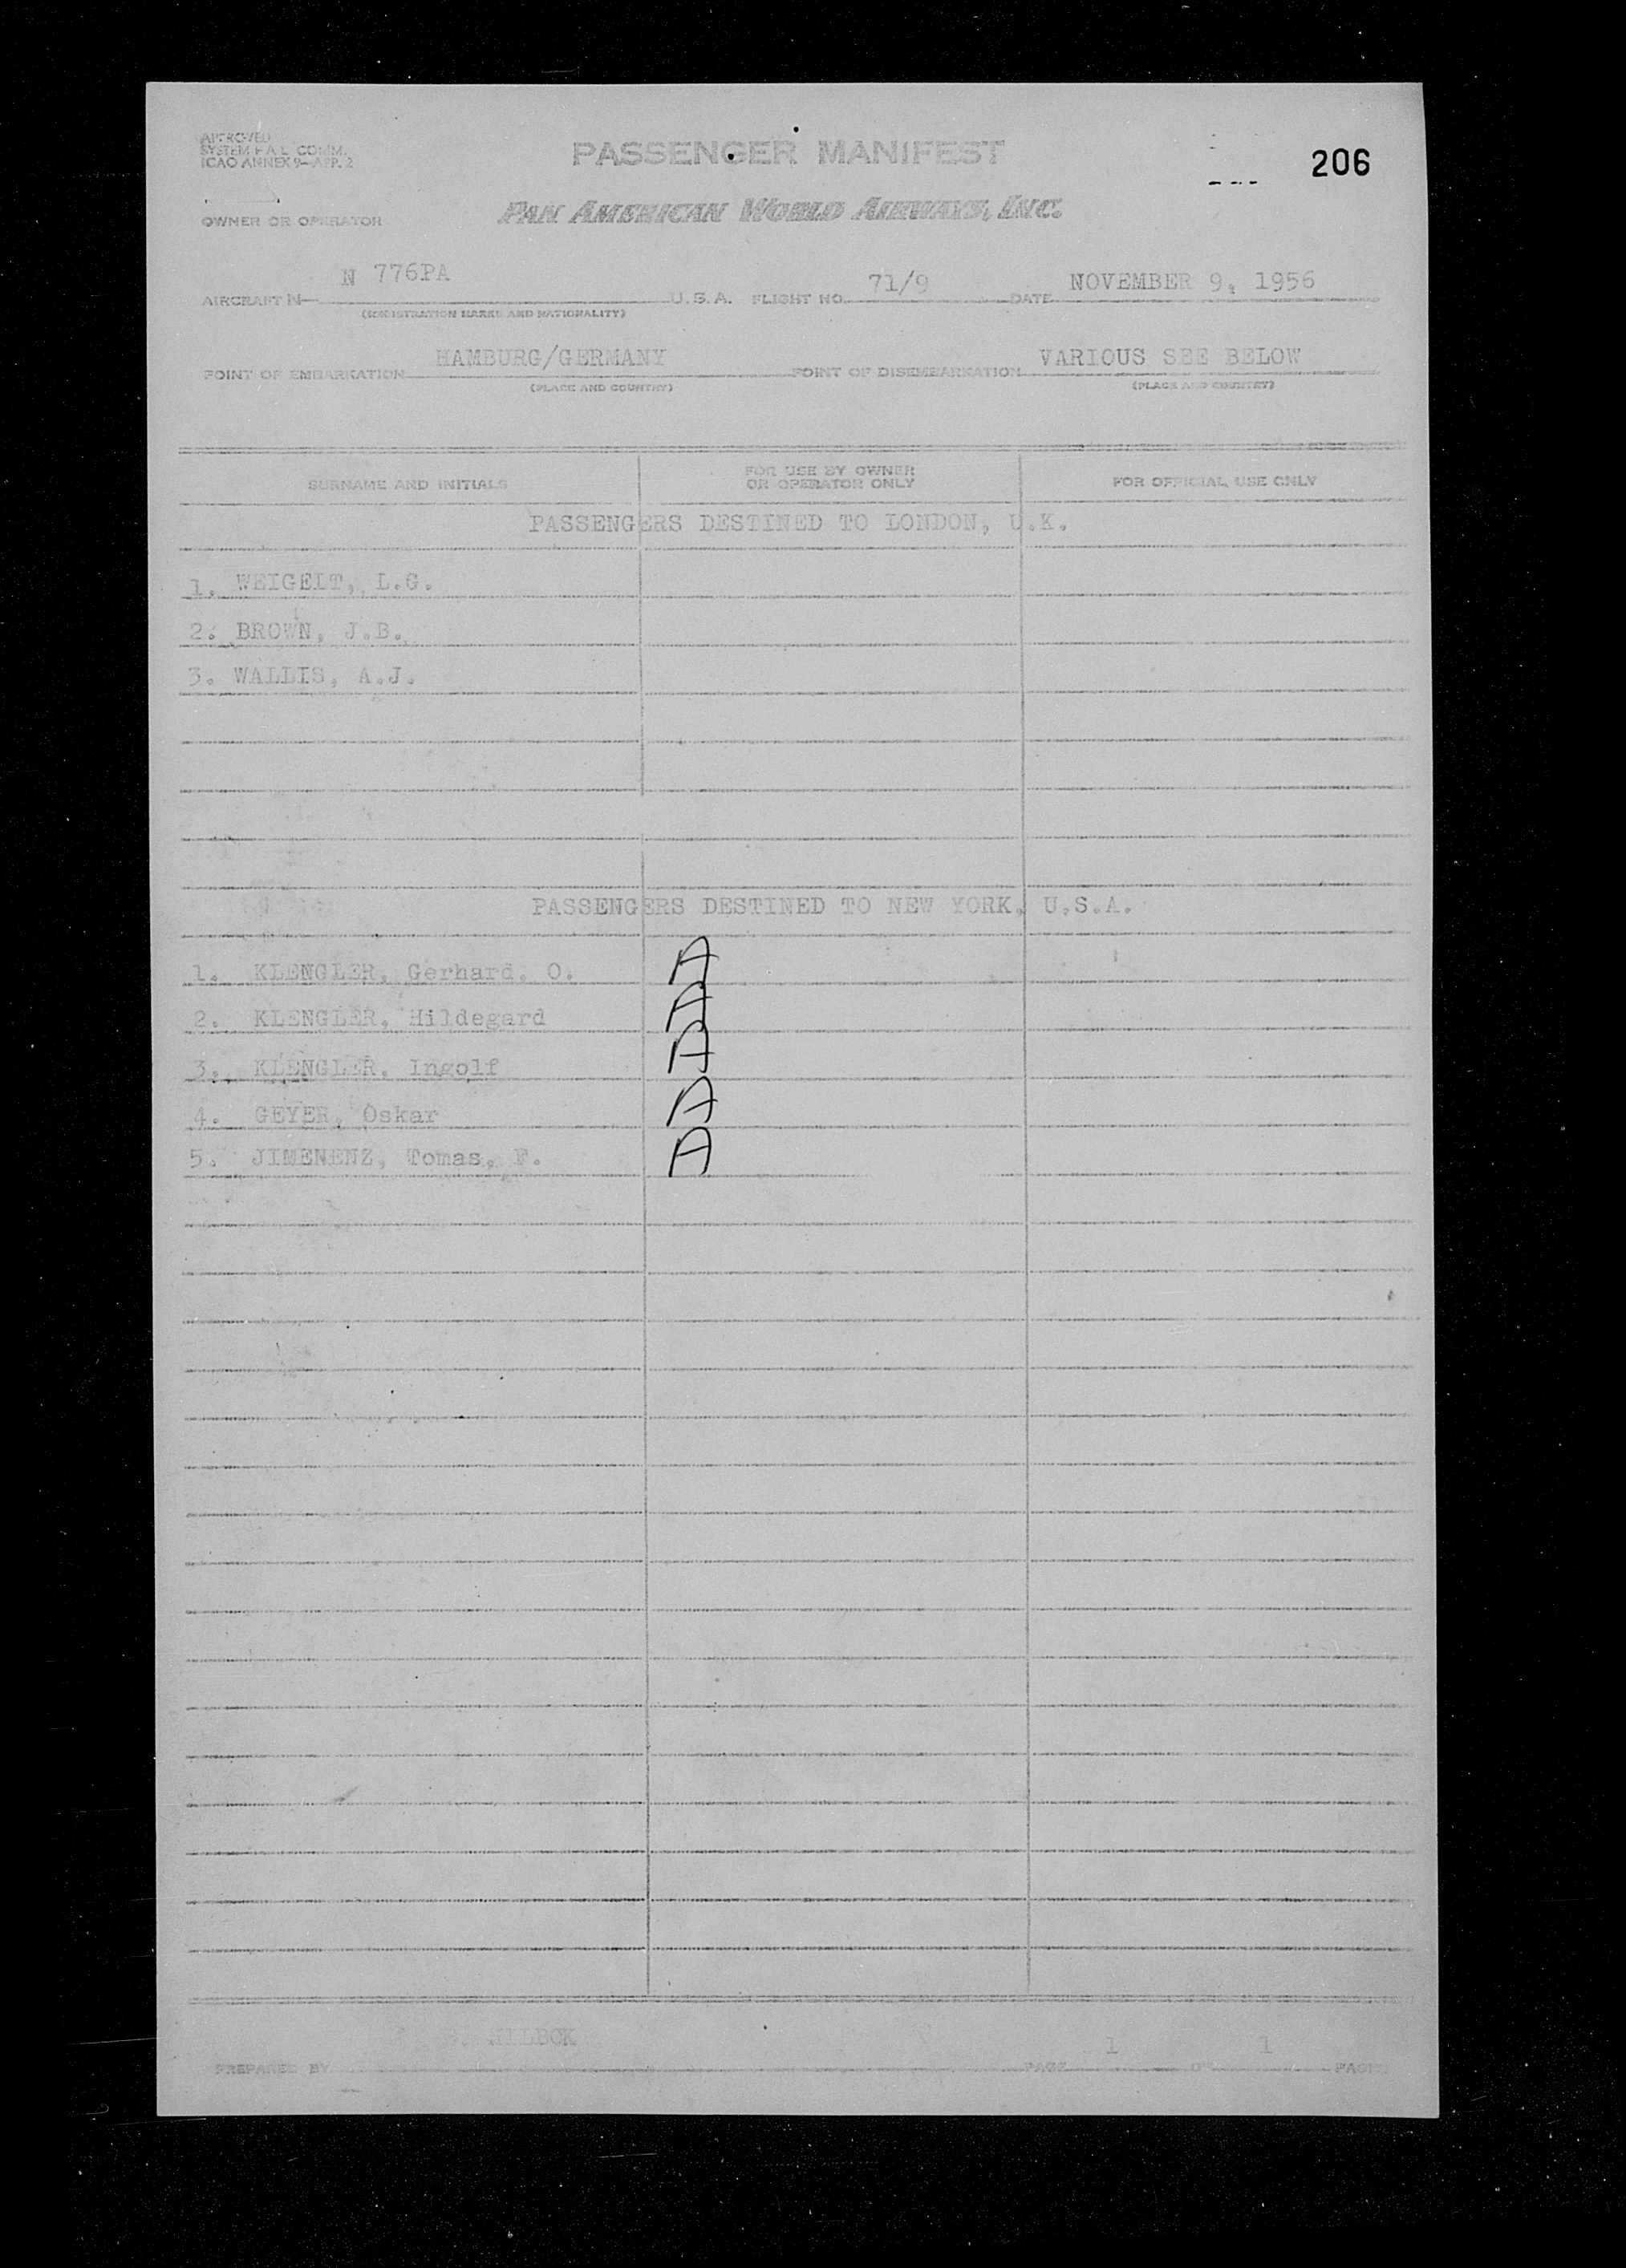 APPROVED
SYSTEM F.A.L. COMM.
ICAO ANNEX 9—APP. 2
PASSENGER MANIFEST
206
OWNER OR OPERATOR
PAN AMERICAN WORLD AIRWAYS, INC.
AIRCRAFT N N 776PA U.S.A. FLIGHT NO. 71/9 DATE NOVEMBER 9, 1956
(REGISTRATION MARKS AND NATIONALITY)
POINT OF EMBARKATION HAMBURG/GERMANY POINT OF DISEMBARKATION VARIOUS SEE BELOW
(PLACE AND COUNTRY) (PLACE AND COUNTRY)
SURNAME AND INITIALS FOR USE BY OWNER OR OPERATOR ONLY FOR OFFICIAL USE ONLY
PASSENGERS DESTINED TO LONDON, U.K.
1. WEIGELT, L.G.
2. BROWN, J.B.
3. WALLIS, A.J.
PASSENGERS DESTINED TO NEW YORK, U.S.A.
1. KLENGLER, Gerhard. O. A
2. KLENGLER, Hildegard A
3. KLENGLER, Ingolf A
4. GEYER, Oskar A
5. JIMENENZ, Tomas, F. A
PREPARED BY PAGE 1 OF 1 PAGES